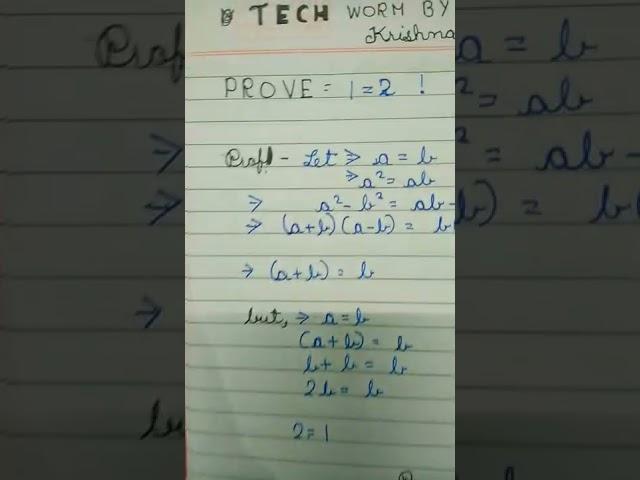 TECH WORM BY
Krishna
PROVE = 1 = 2 !
Proof - Let ⇒ a = b
⇒ a² = ab
⇒ a² - b² = ab -
⇒ (a+b) (a-b) = b
⇒ (a+b) = b
but, ⇒ a = b
(a+b) = b
b + b = b
2b = b
2 = 1